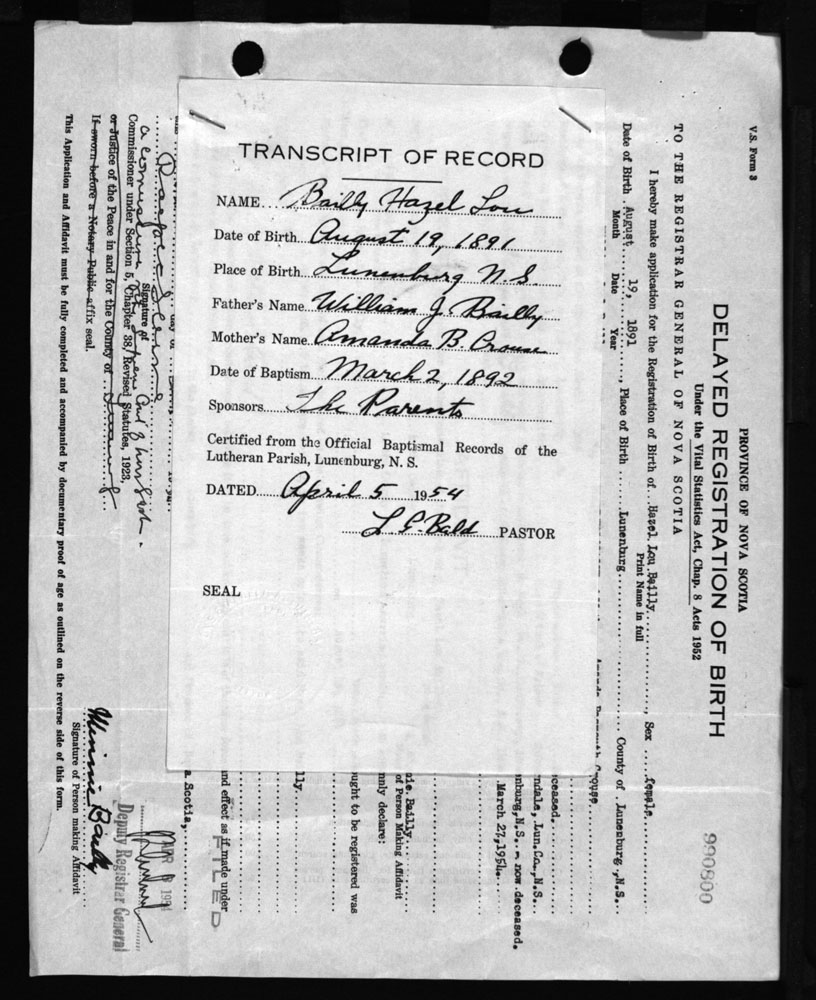 TRANSCRIPT OF RECORD
NAME.... Bailly Hazel Lou
Date of Birth.... August 19, 1891
Place of Birth.... Lunenburg N.S.
Father's Name. William J. Bailly
Mother's Name. Amanda B. Crouse
Date of Baptism.... March 2, 1892
Sponsors.... The Parents
Certified from the Official Baptismal Records of the
Lutheran Parish, Lunenburg, N. S.
DATED..... April 5 1954
PASTOR
SEAL
V.S. Form 3
PROVINCE OF NOVA SCOTIA
DELAYED REGISTRATION OF BIRTH
Under the Vital Statistics Act, Chap. 8 Acts 1952
990800
TO THE REGISTRAR GENERAL OF NOVA SCOTIA
I hereby make application for the Registration of Birth of... Hazel Lou Bailly......., Sex .... female...
Print Name in full
Date of Birth . August... 19, 1891 ....., Place of Birth ...... Lunenburg............ County of . Lunenburg, N.S...
Month Date Year
Crouse
ceased.
ndale, Lun.Co., N.S...
nburg, N.S. - now deceased.
March 27, 1954....
nie. Bailly
of Person Making Affidavit
mnly declare:
ught to be registered was
lly.
nd effect as if made under
FILED
a Scotia,
Signature of
Commissioner under Section 5, Chapter 38, Revised Statutes, 1923,
or Justice of the Peace in and for the County of
If sworn before a Notary Public affix seal.
Deputy Registrar General
Minnie Bailly
Signature of Person making Affidavit
This Application and Affidavit must be fully completed and accompanied by documentary proof of age as outlined on the reverse side of this form.